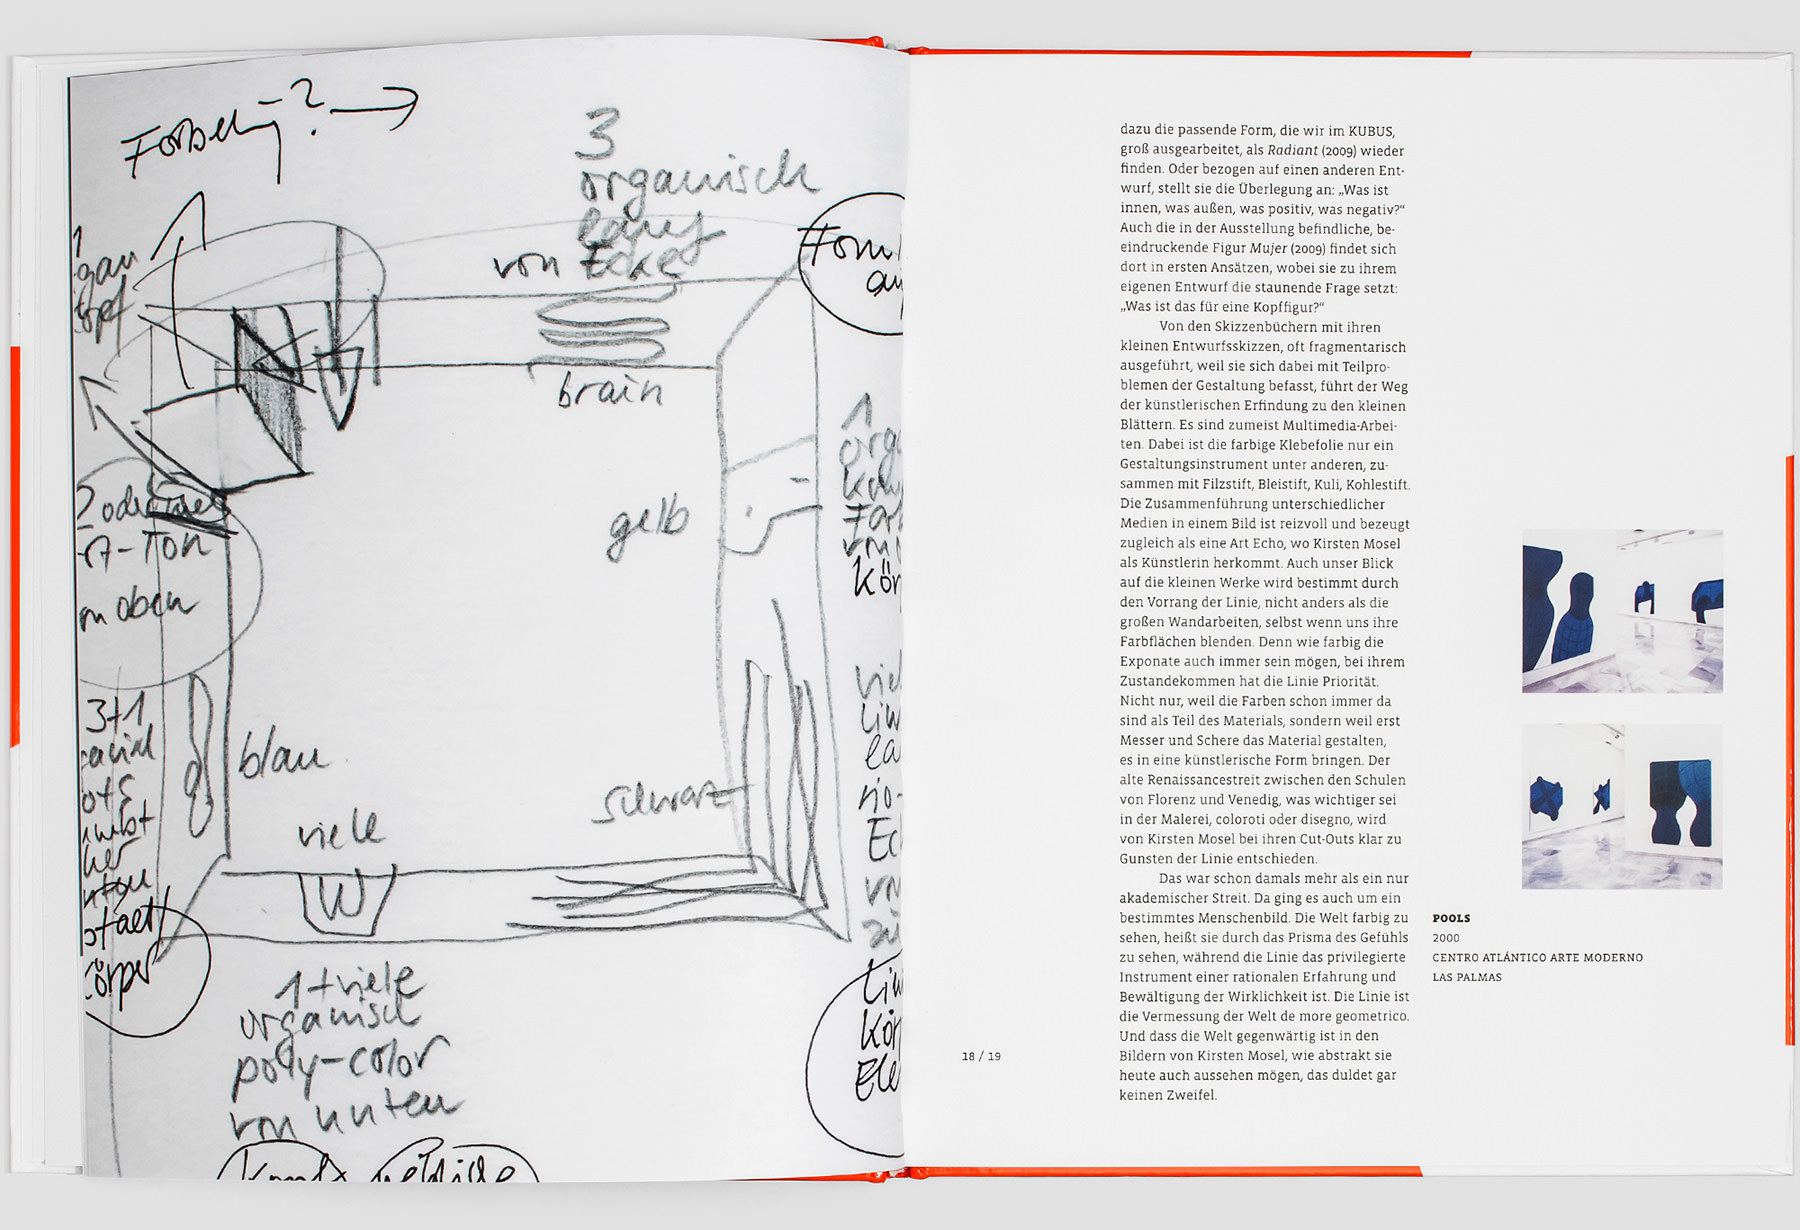 3
organisch
lauf
von Ecke
Form
brain
gelb
2 oder
Ton
oben
3+1
blau
viele
schwarz
1+viele
organisch
poly-color
von unten
dazu die passende Form, die wir im KUBUS,
groß ausgearbeitet, als Radiant (2009) wieder
finden. Oder bezogen auf einen anderen Ent-
wurf, stellt sie die Überlegung an: „Was ist
innen, was außen, was positiv, was negativ?“
Auch die in der Ausstellung befindliche, be-
eindruckende Figur Mujer (2009) findet sich
dort in ersten Ansätzen, wobei sie zu ihrem
eigenen Entwurf die staunende Frage setzt:
„Was ist das für eine Kopffigur?“
Von den Skizzenbüchern mit ihren
kleinen Entwurfsskizzen, oft fragmentarisch
ausgeführt, weil sie sich dabei mit Teilpro-
blemen der Gestaltung befasst, führt der Weg
der künstlerischen Erfindung zu den kleinen
Blättern. Es sind zumeist Multimedia-Arbei-
ten. Dabei ist die farbige Klebefolie nur ein
Gestaltungsinstrument unter anderen, zu-
sammen mit Filzstift, Bleistift, Kuli, Kohlestift.
Die Zusammenführung unterschiedlicher
Medien in einem Bild ist reizvoll und bezeugt
zugleich als eine Art Echo, wo Kirsten Mosel
als Künstlerin herkommt. Auch unser Blick
auf die kleinen Werke wird bestimmt durch
den Vorrang der Linie, nicht anders als die
großen Wandarbeiten, selbst wenn uns ihre
Farbflächen blenden. Denn wie farbig die
Exponate auch immer sein mögen, bei ihrem
Zustandekommen hat die Linie Priorität.
Nicht nur, weil die Farben schon immer da
sind als Teil des Materials, sondern weil erst
Messer und Schere das Material gestalten,
es in eine künstlerische Form bringen. Der
alte Renaissancestreit zwischen den Schulen
von Florenz und Venedig, was wichtiger sei
in der Malerei, coloroti oder disegno, wird
von Kirsten Mosel bei ihren Cut-Outs klar zu
Gunsten der Linie entschieden.
Das war schon damals mehr als ein nur
akademischer Streit. Da ging es auch um ein
bestimmtes Menschenbild. Die Welt farbig zu
sehen, heißt sie durch das Prisma des Gefühls
zu sehen, während die Linie das privilegierte
Instrument einer rationalen Erfahrung und
Bewältigung der Wirklichkeit ist. Die Linie ist
die Vermessung der Welt de more geometrico.
Und dass die Welt gegenwärtig ist in den
Bildern von Kirsten Mosel, wie abstrakt sie
heute auch aussehen mögen, das duldet gar
keinen Zweifel.
POOLS
2000
CENTRO ATLÁNTICO ARTE MODERNO
LAS PALMAS
18 / 19